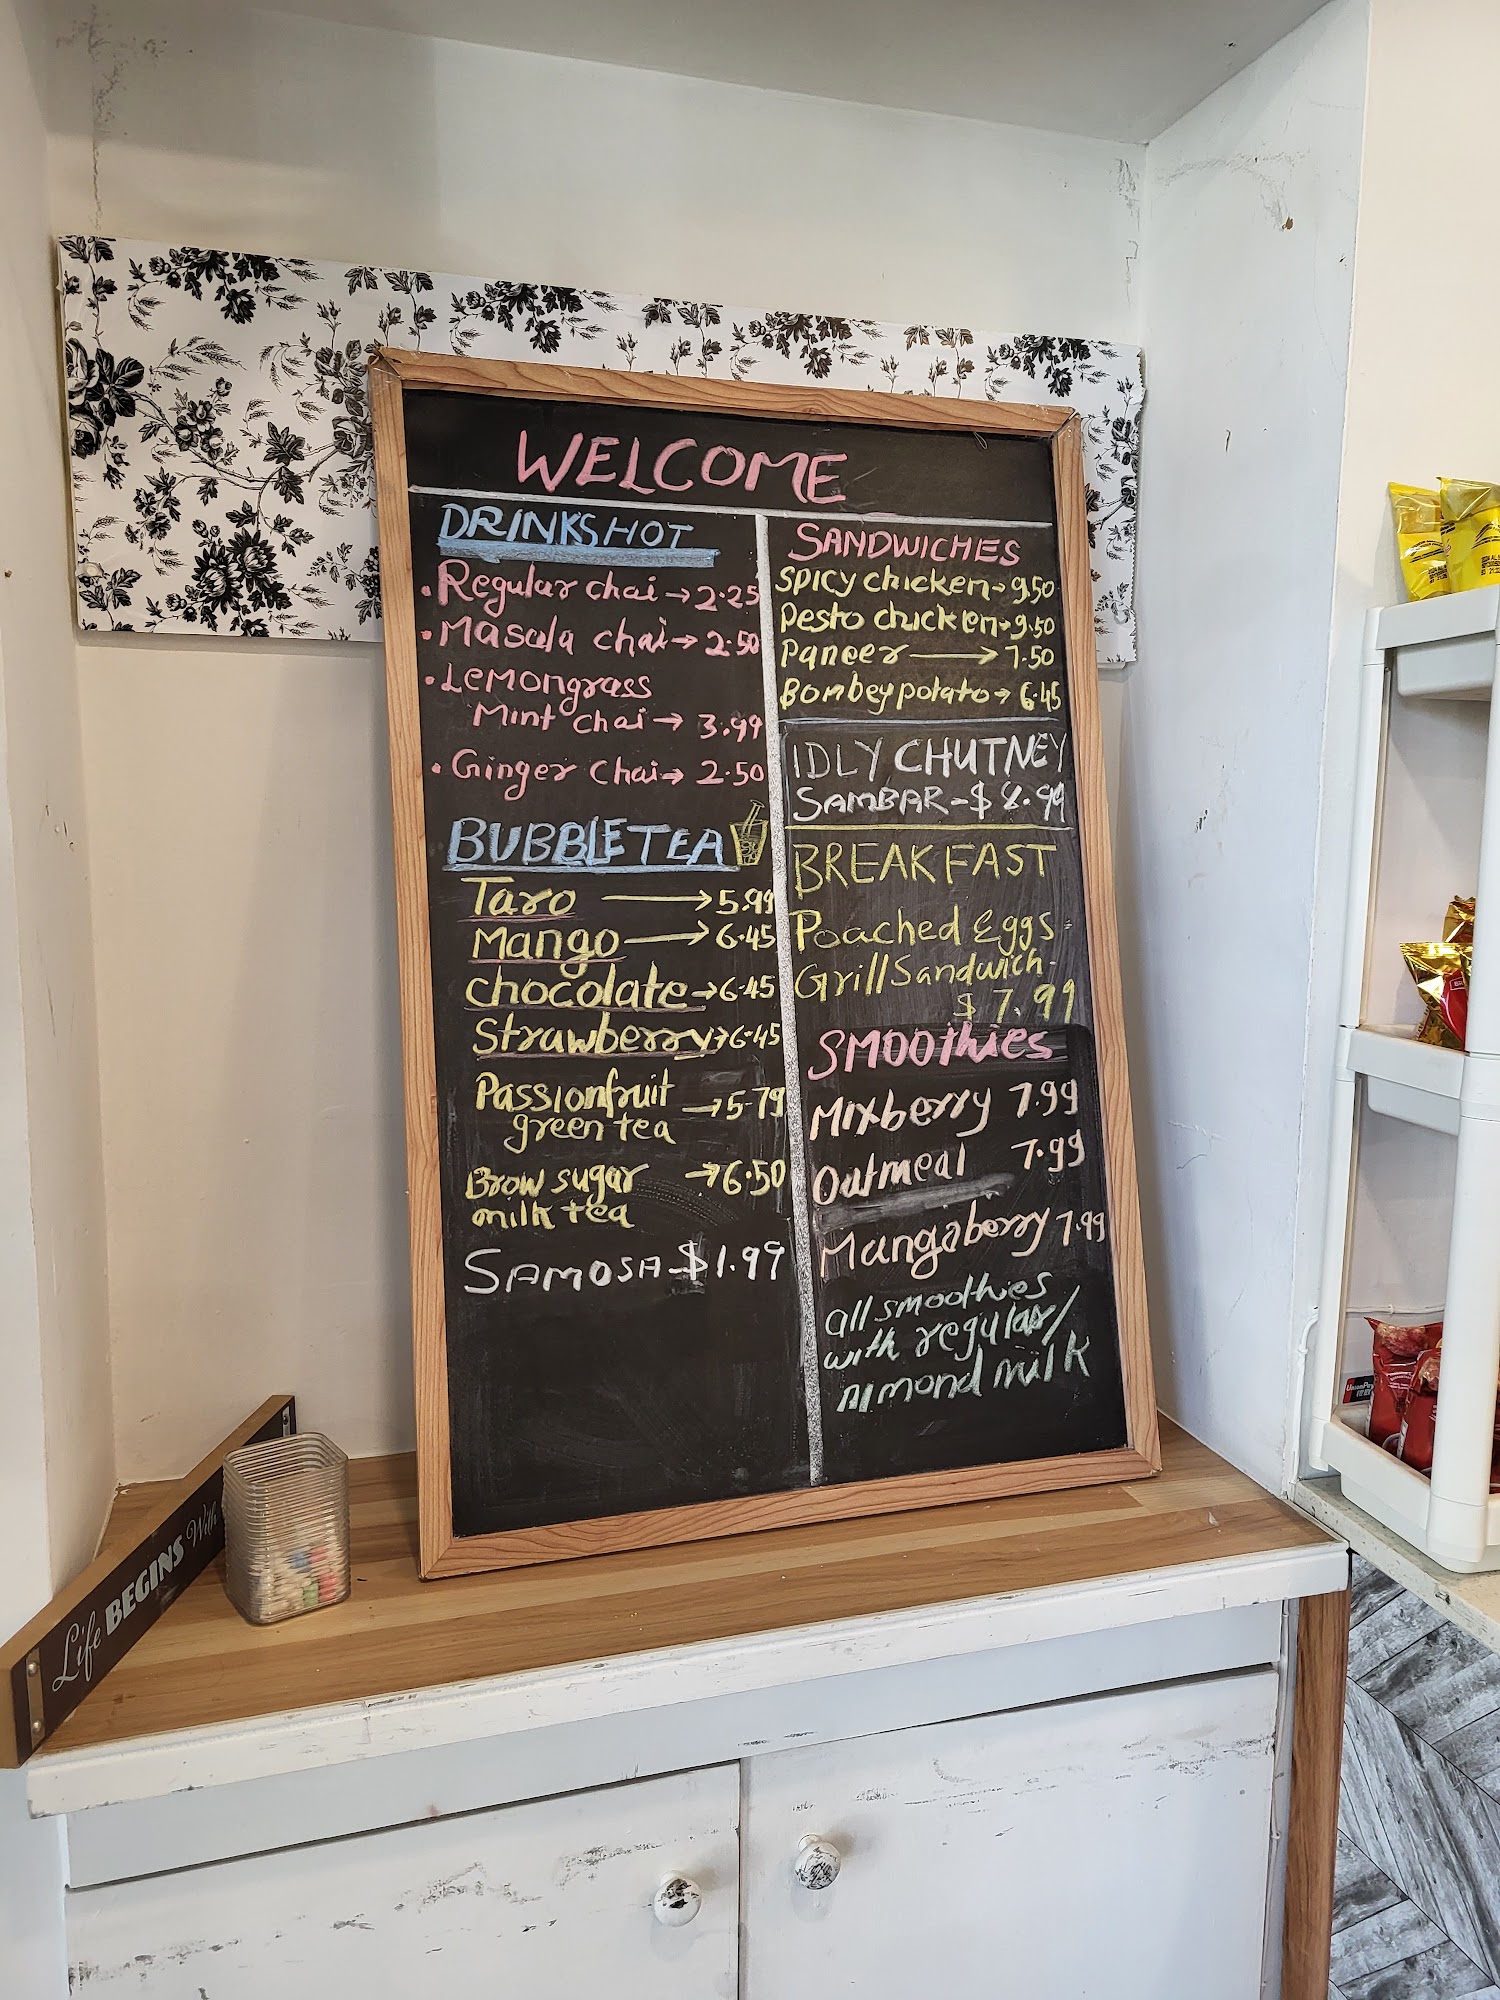 WELCOME
DRINKS HOT
• Regular chai → 2.25
• Masala chai → 2.50
• Lemongrass
Mint chai → 3.99
• Ginger chai → 2.50
BUBBLE TEA
Taro → 5.99
Mango → 6.45
chocolate → 6.45
Strawberry → 6.45
Passionfruit
green tea → 5.79
Brow sugar → 6.50
milk tea
SAMOSA - $1.99
SANDWICHES
Spicy chicken → 9.50
Pesto chicken → 9.50
Paneer → 7.50
Bombey potato → 6.45
IDLY CHUTNEY
SAMBAR - $ 8.99
BREAKFAST
Poached Eggs
Grill Sandwich
$ 7.99
SMOOthies
Mixberry 7.99
Oatmeal 7.99
Mangaberry 7.99
all smoothies
with regular/
Almond milk
Life BEGINS With